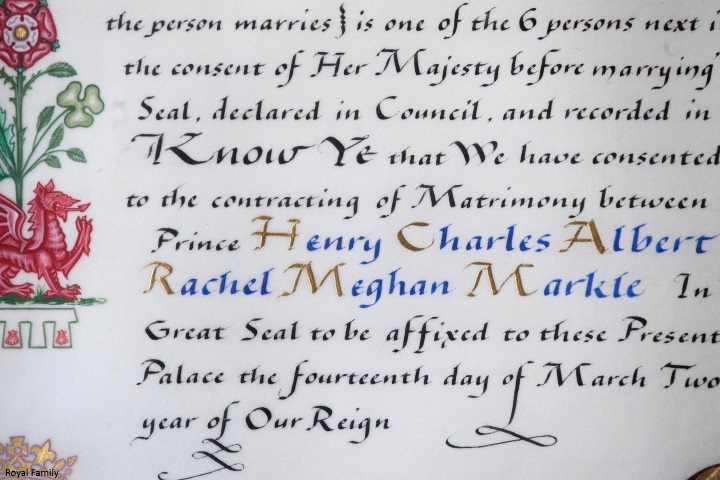 the person marries} is one of the 6 persons next
the consent of Her Majesty before marrying
Seal, declared in Council, and recorded in
Know Ye that We have consented
to the contracting of Matrimony between
Prince Henry Charles Albert
Rachel Meghan Markle In
Great Seal to be affixed to these Present
Palace the fourteenth day of March Two
year of Our Reign
Royal Family